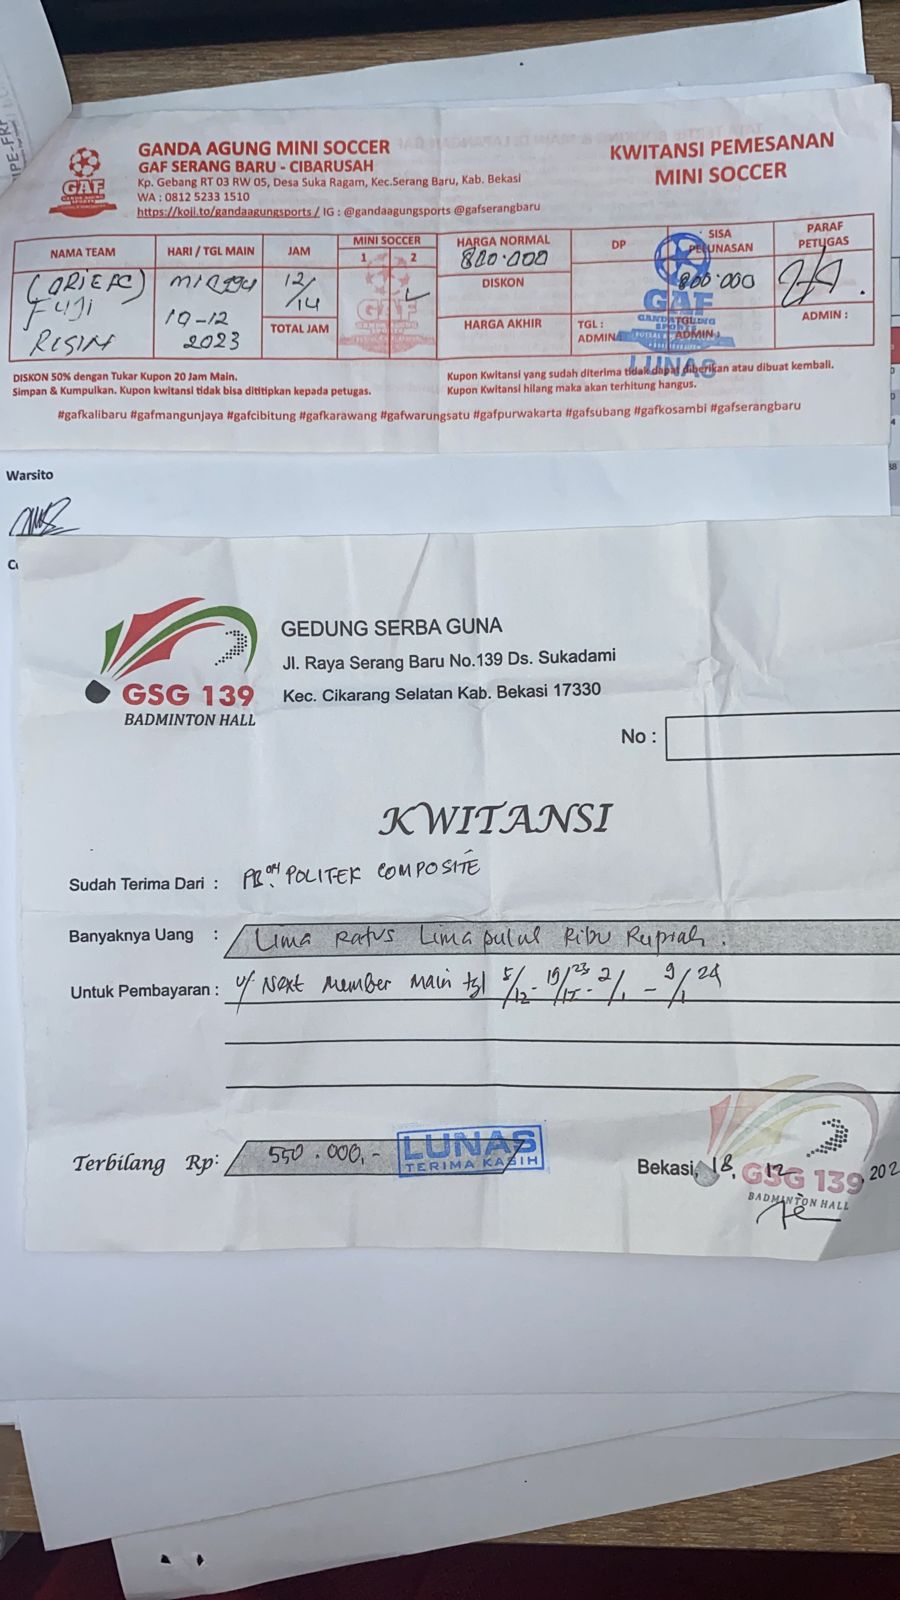 GANDA AGUNG MINI SOCCER
GAF SERANG BARU - CIBARUSAH
Kp. Gebang RT 03 RW 05, Desa Suka Ragam, Kec.Serang Baru, Kab. Bekasi
WA : 0812 5233 1510
https://koji.to/gandaagungsports / IG : @gandaagungsports @gafserangbaru
KWITANSI PEMESANAN
MINI SOCCER
GAF
NAMA TEAM HARI / TGL MAIN JAM MINI SOCCER HARGA NORMAL DP SISA PELUNASAN PARAF PETUGAS
1 2
FUJI
RESIN
19-12
2023
12/14
TOTAL JAM
800.000
DISKON
HARGA AKHIR
TGL :
ADMIN :
800.000
TGL :
ADMIN :
ADMIN :
GAF
LUNAS
DISKON 50% dengan Tukar Kupon 20 Jam Main.
Simpan & Kumpulkan. Kupon kwitansi tidak bisa dititipkan kepada petugas.
Kupon Kwitansi yang sudah diterima tidak dapat diberikan atau dibuat kembali.
Kupon Kwitansi hilang maka akan terhitung hangus.
#gafkalibaru #gafmangunjaya #gafcibitung #gafkarawang #gafwarungsatu #gafpurwakarta #gafsubang #gafkosambi #gafserangbaru
Warsito
GSG 139
BADMINTON HALL
GEDUNG SERBA GUNA
Jl. Raya Serang Baru No.139 Ds. Sukadami
Kec. Cikarang Selatan Kab. Bekasi 17330
No :
KWITANSI
Sudah Terima Dari : PB. POLITEK COMPOSITE
Banyaknya Uang : Lima Ratus Lima puluh Ribu Rupiah.
Untuk Pembayaran : u/ Next Member Main tgl 5/12 - 19/23 - 2/1 - 9/1 24
Terbilang Rp: 550.000,-
LUNAS
TERIMA KASIH
Bekasi, 18, 12, 202
GSG 139
BADMINTON HALL